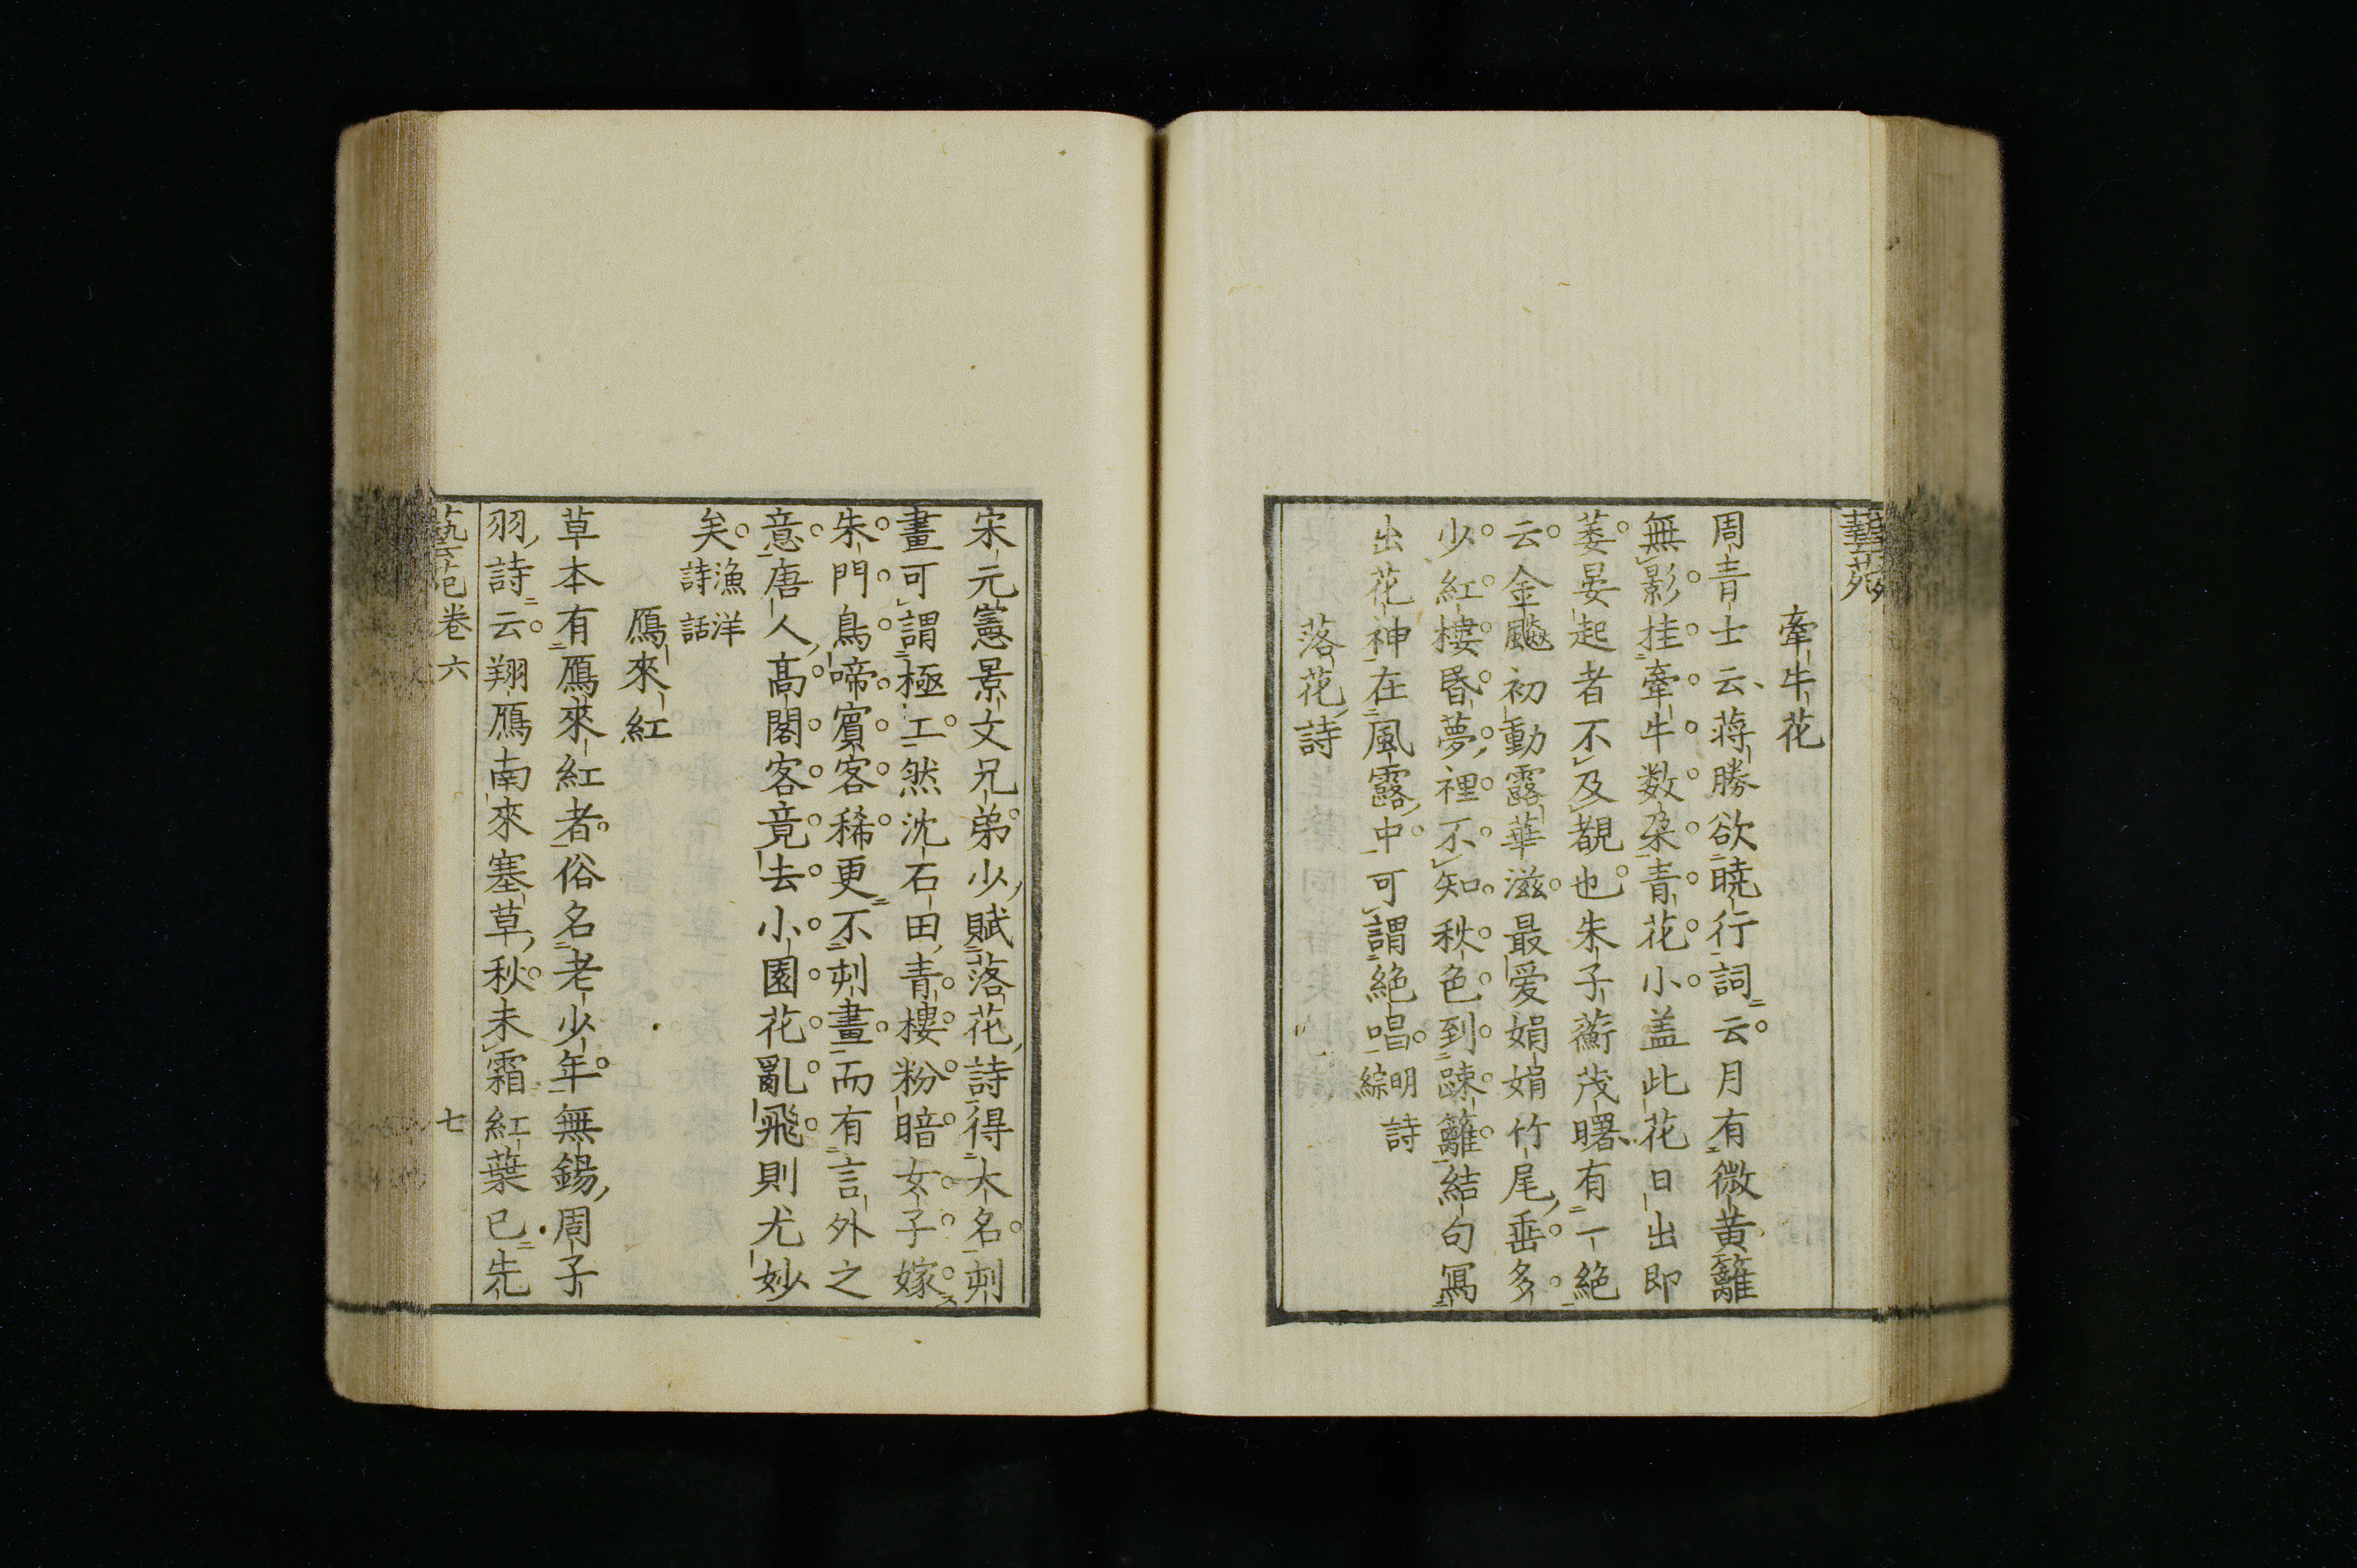 藝苑
牽牛花
周青士云蒋勝欲曉行詞云月有微黄籬
無影挂牽牛数朶青花小盖此花日出即
萎晏起者不及覩也朱子蘅茂曙有一絶
云金飈初動露華滋最爱娟娟竹尾垂多
少紅樓昏夢裡不知秋色到踈籬結句冩
出花神在風露中可謂絶唱明詩綜
落花詩
宋元憲景文兄弟少賦落花詩得大名刻
畫可謂極工然沈石田青樓粉暗女子嫁
朱門鳥啼賔客稀更不刻畫而有言外之
意唐人高閣客竟去小園花亂飛則尤妙
矣漁洋詩話
鴈來紅
草本有鴈來紅者俗名老少年無錫周子
羽詩云翔鴈南來塞草秋未霜紅葉已先
藝苑卷六 七